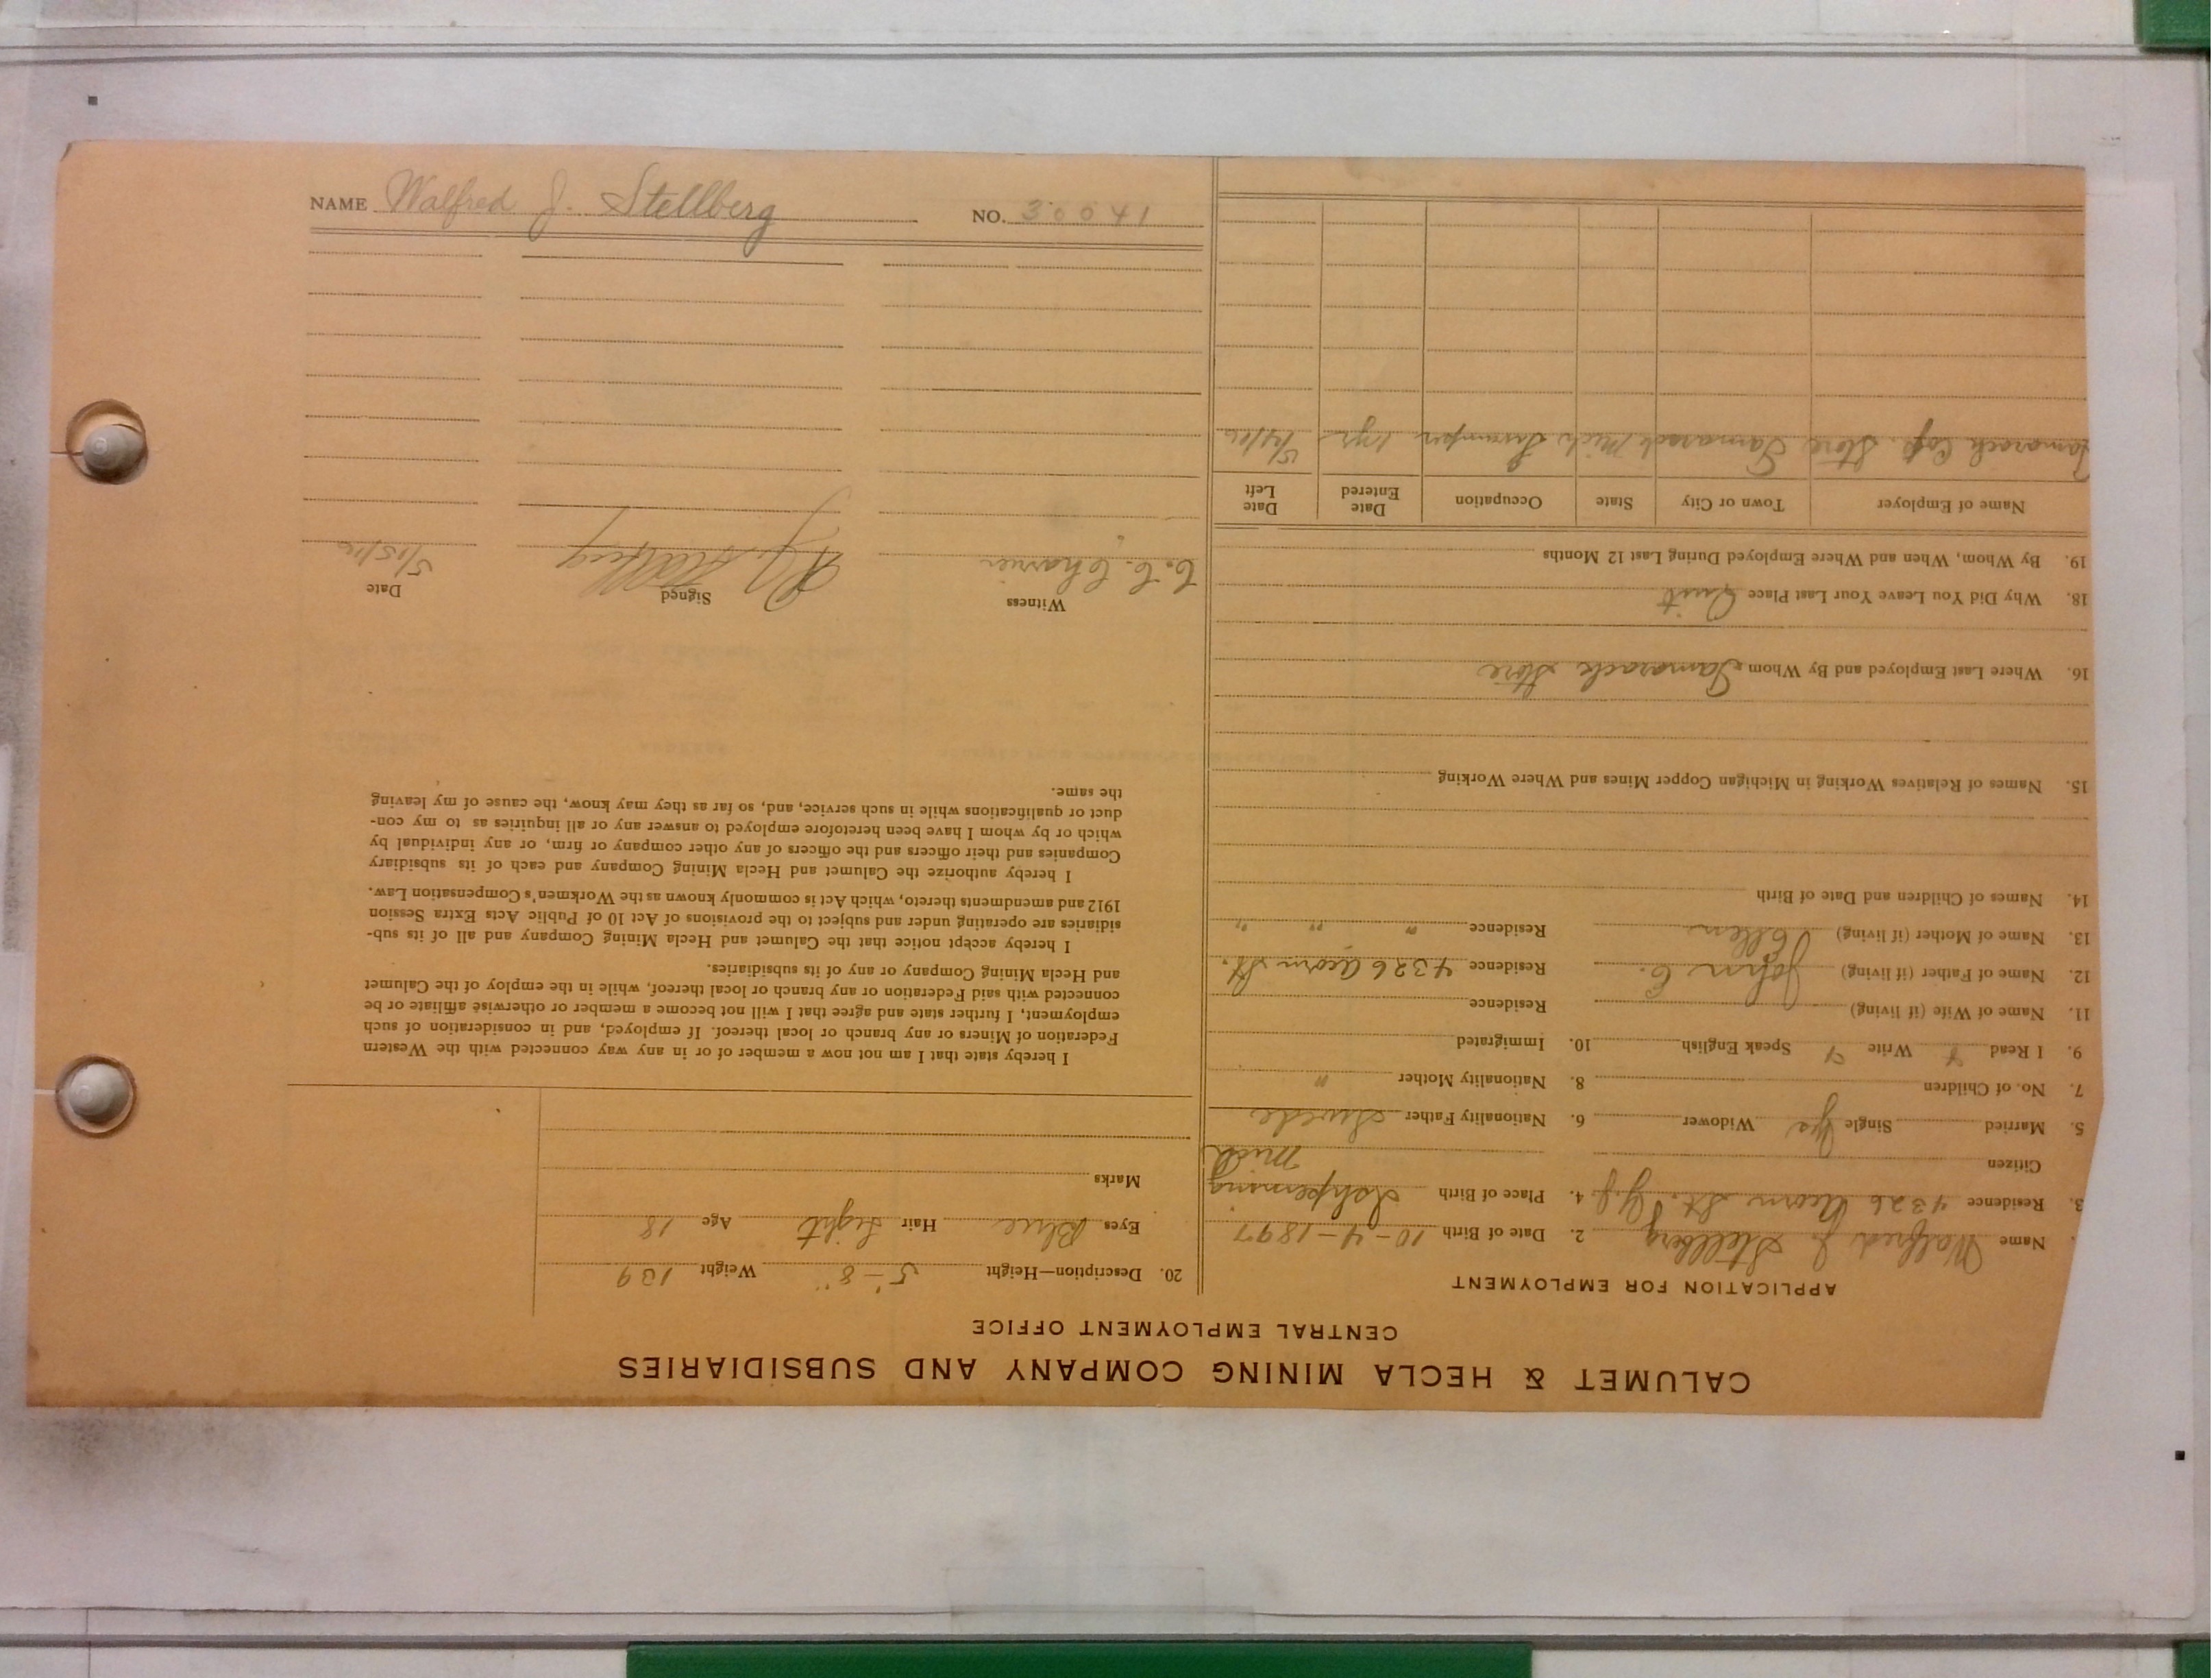 CALUMET & HECLA MINING COMPANY AND SUBSIDIARIES
CENTRAL EMPLOYMENT OFFICE
APPLICATION FOR EMPLOYMENT
Name Walfred J. Stellberg 2. Date of Birth 10-4-1897
3. Residence 4326 Acorn St. Y.J. 4. Place of Birth Ishpeming
Citizen Mich
5. Married Single Yes Widower 6. Nationality Father Swede
7. No. of Children 8. Nationality Mother "
9. I Read Y Write Y Speak English 10. Immigrated
11. Name of Wife (if living) Residence
12. Name of Father (if living) John E. Residence 4326 Acorn St.
13. Name of Mother (if living) Ellen Residence " " "
14. Names of Children and Date of Birth
15. Names of Relatives Working in Michigan Copper Mines and Where Working
16. Where Last Employed and By Whom Tamarack Store
18. Why Did You Leave Your Last Place Quit
19. By Whom, When and Where Employed During Last 12 Months
Name of Employer Town or City State Occupation Date Entered Date Left
Tamarack Cop. Store Tamarack Mich 1 yr 5/14/16
20. Description—Height 5'-8" Weight 139
Eyes Blue Hair Light Age 18
Marks
I hereby state that I am not now a member of or in any way connected with the Western
Federation of Miners or any branch or local thereof. If employed, and in consideration of such
employment, I further state and agree that I will not become a member or otherwise affiliate or be
connected with said Federation or any branch or local thereof, while in the employ of the Calumet
and Hecla Mining Company or any of its subsidiaries.
I hereby accept notice that the Calumet and Hecla Mining Company and all of its sub-
sidiaries are operating under and subject to the provisions of Act 10 of Public Acts Extra Session
1912 and amendments thereto, which Act is commonly known as the Workmen's Compensation Law.
I hereby authorize the Calumet and Hecla Mining Company and each of its subsidiary
Companies and their officers and the officers of any other company or firm, or any individual by
which or by whom I have been heretofore employed to answer any or all inquiries as to my con-
duct or qualifications while in such service, and, so far as they may know, the cause of my leaving
the same.
Witness Signed Date
C. C. Charrier Stellberg 5/15/16
NAME Walfred J. Stellberg NO. 30041